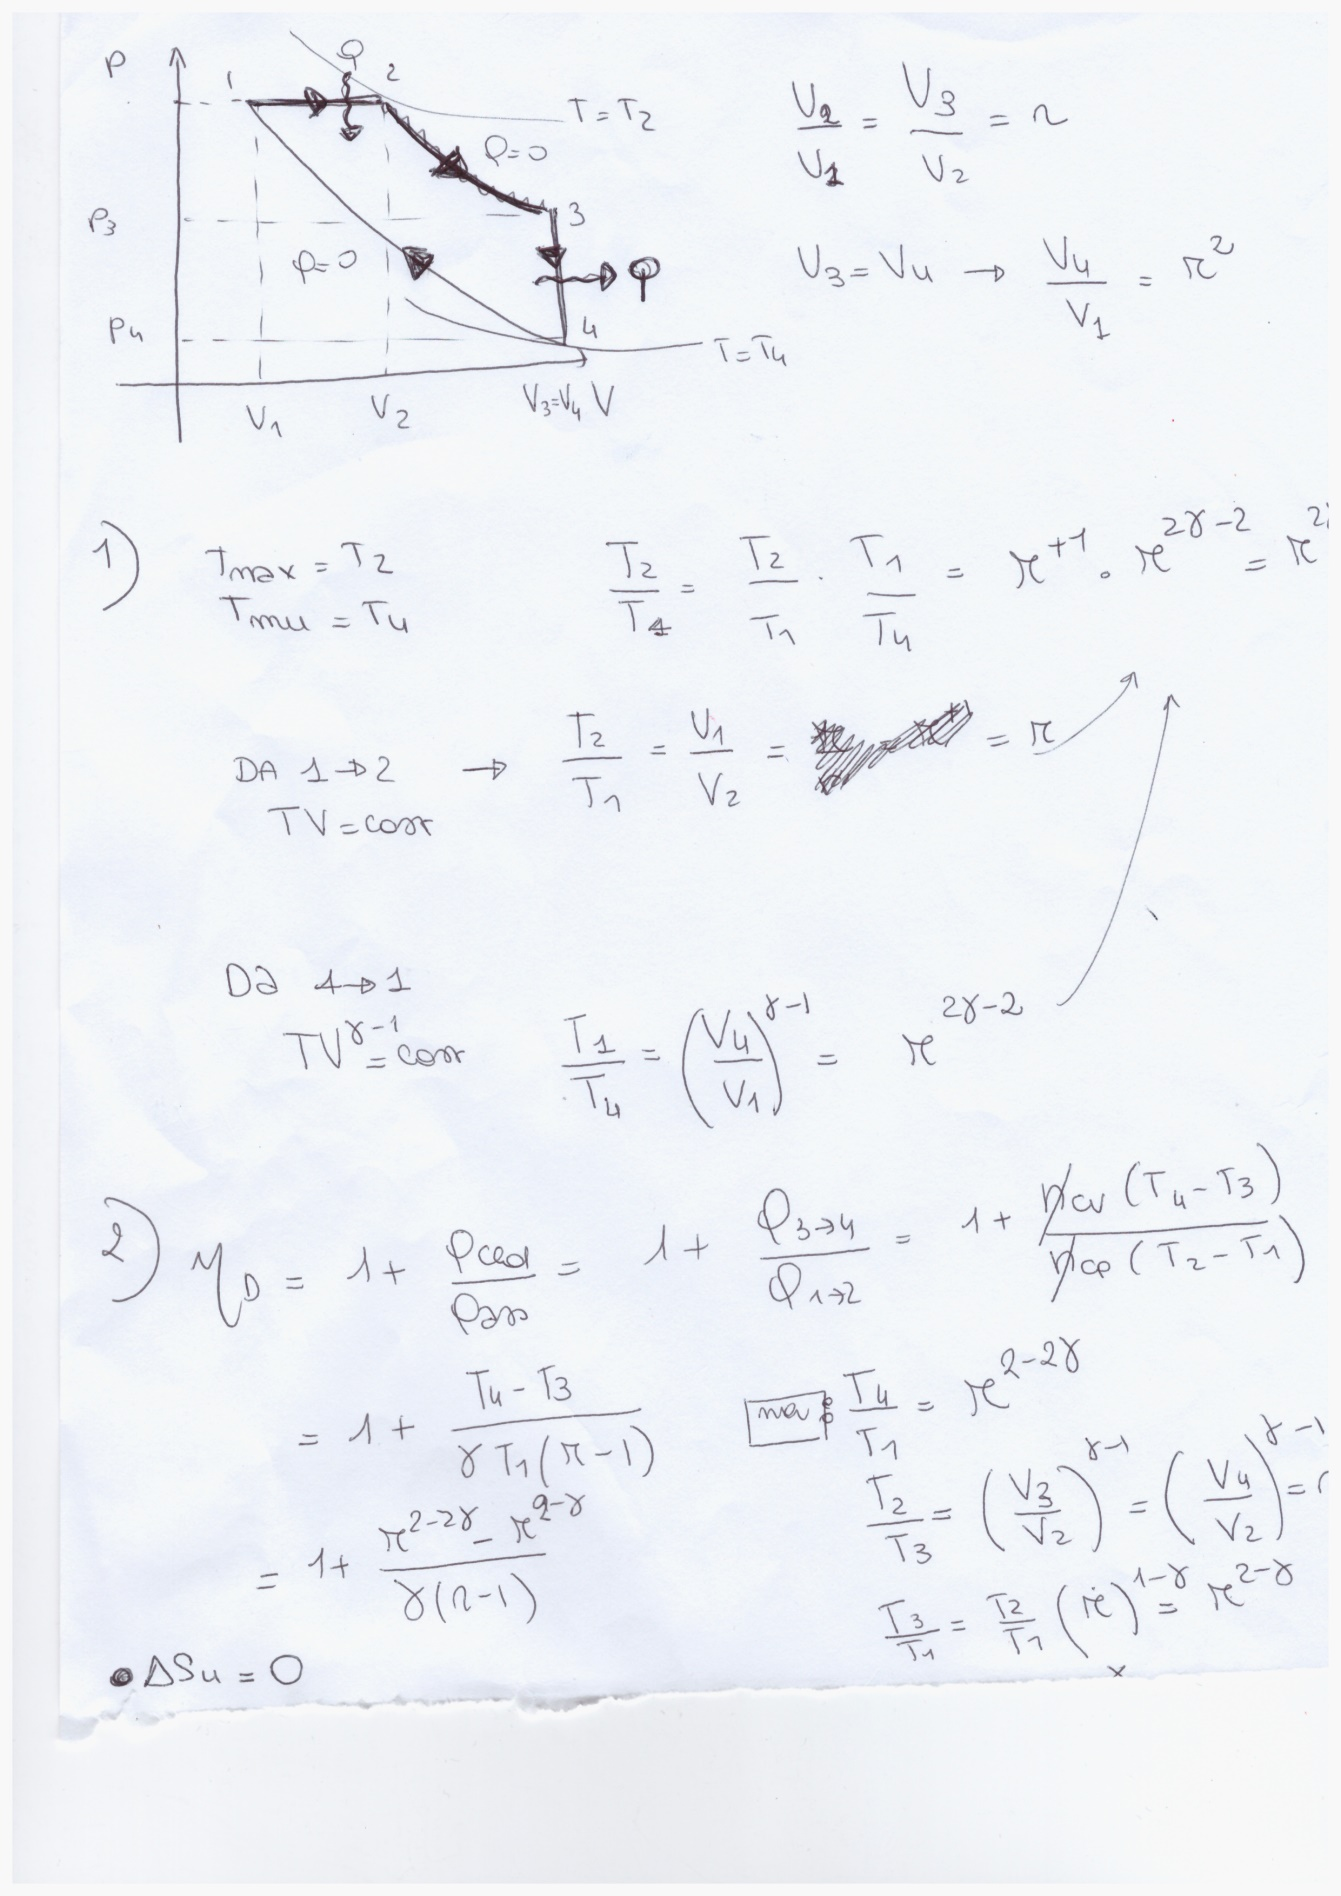 P
1
Q
2
T = T2
Q=0
P3
3
Q=0
Q
P4
4
T=T4
V1
V2
V3=V4 V
V2/V1 = V3/V2 = r
V3 = V4 → V4/V1 = r^2
1)
Tmax = T2
Tmin = T4
T2/T4 = T2/T1 · T1/T4 = r^+1 · r^(2γ-2) = r^2
DA 1→2 → T2/T1 = V1/V2 = = r
TV = cost
Da 4→1
TV^(γ-1) = cost
T1/T4 = (V4/V1)^(γ-1) = r^(2γ-2)
2) ηD = 1 + Qced/Qass = 1 + Q3→4/Q1→2 = 1 + ncv (T4-T3)/ncp (T2-T1)
= 1 + (T4-T3)/(γT1(r-1))
ma: T4/T1 = r^(2-2γ)
T2/T3 = (V3/V2)^(γ-1) = (V4/V2)^(γ-1) =
= 1+ (r^(2-2γ) - r^(2-γ))/(γ(r-1))
T3/T1 = T2/T1 (r)^(1-γ) = r^(2-γ)
• ΔSu = 0